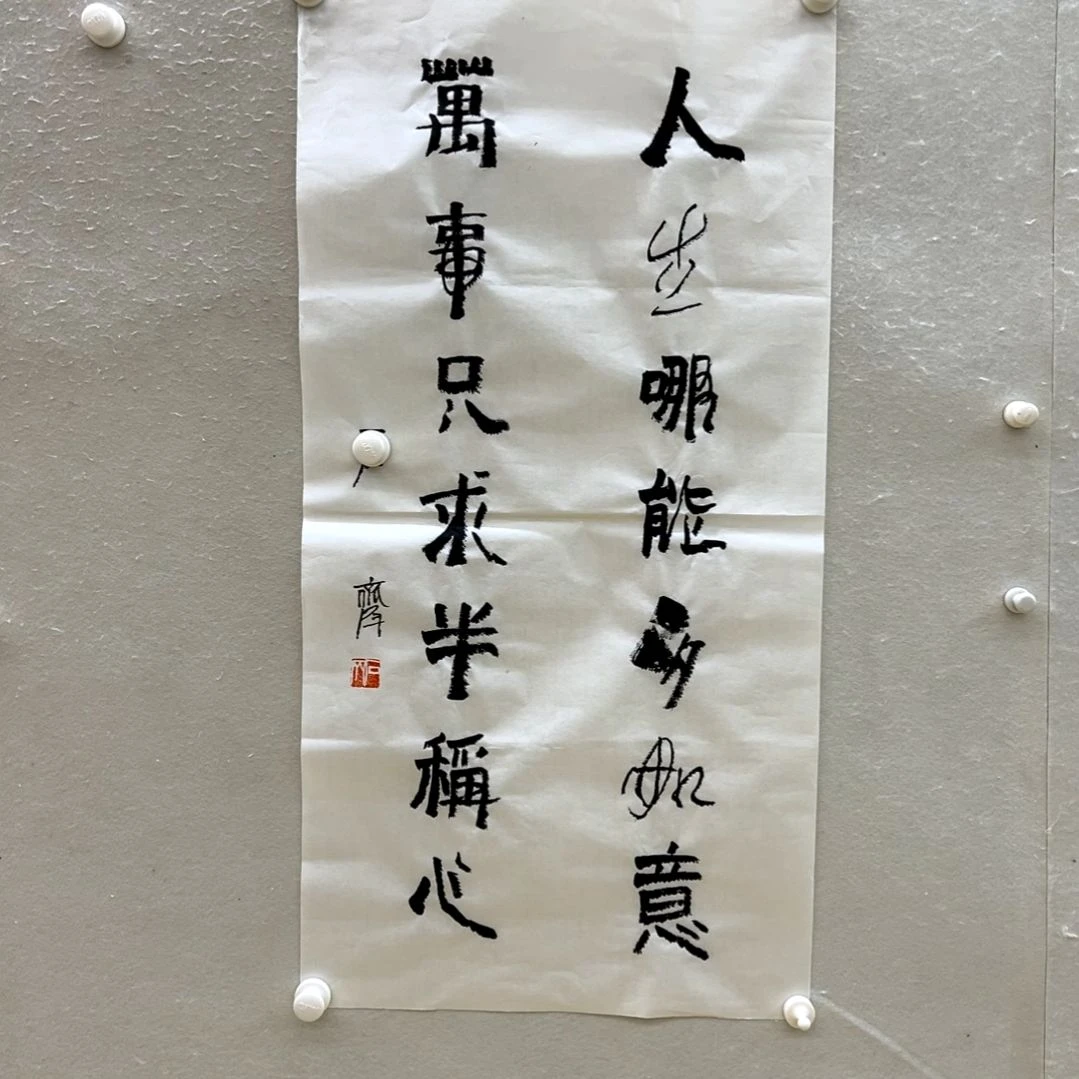 人生哪能多如意
萬事只求半稱心
齊